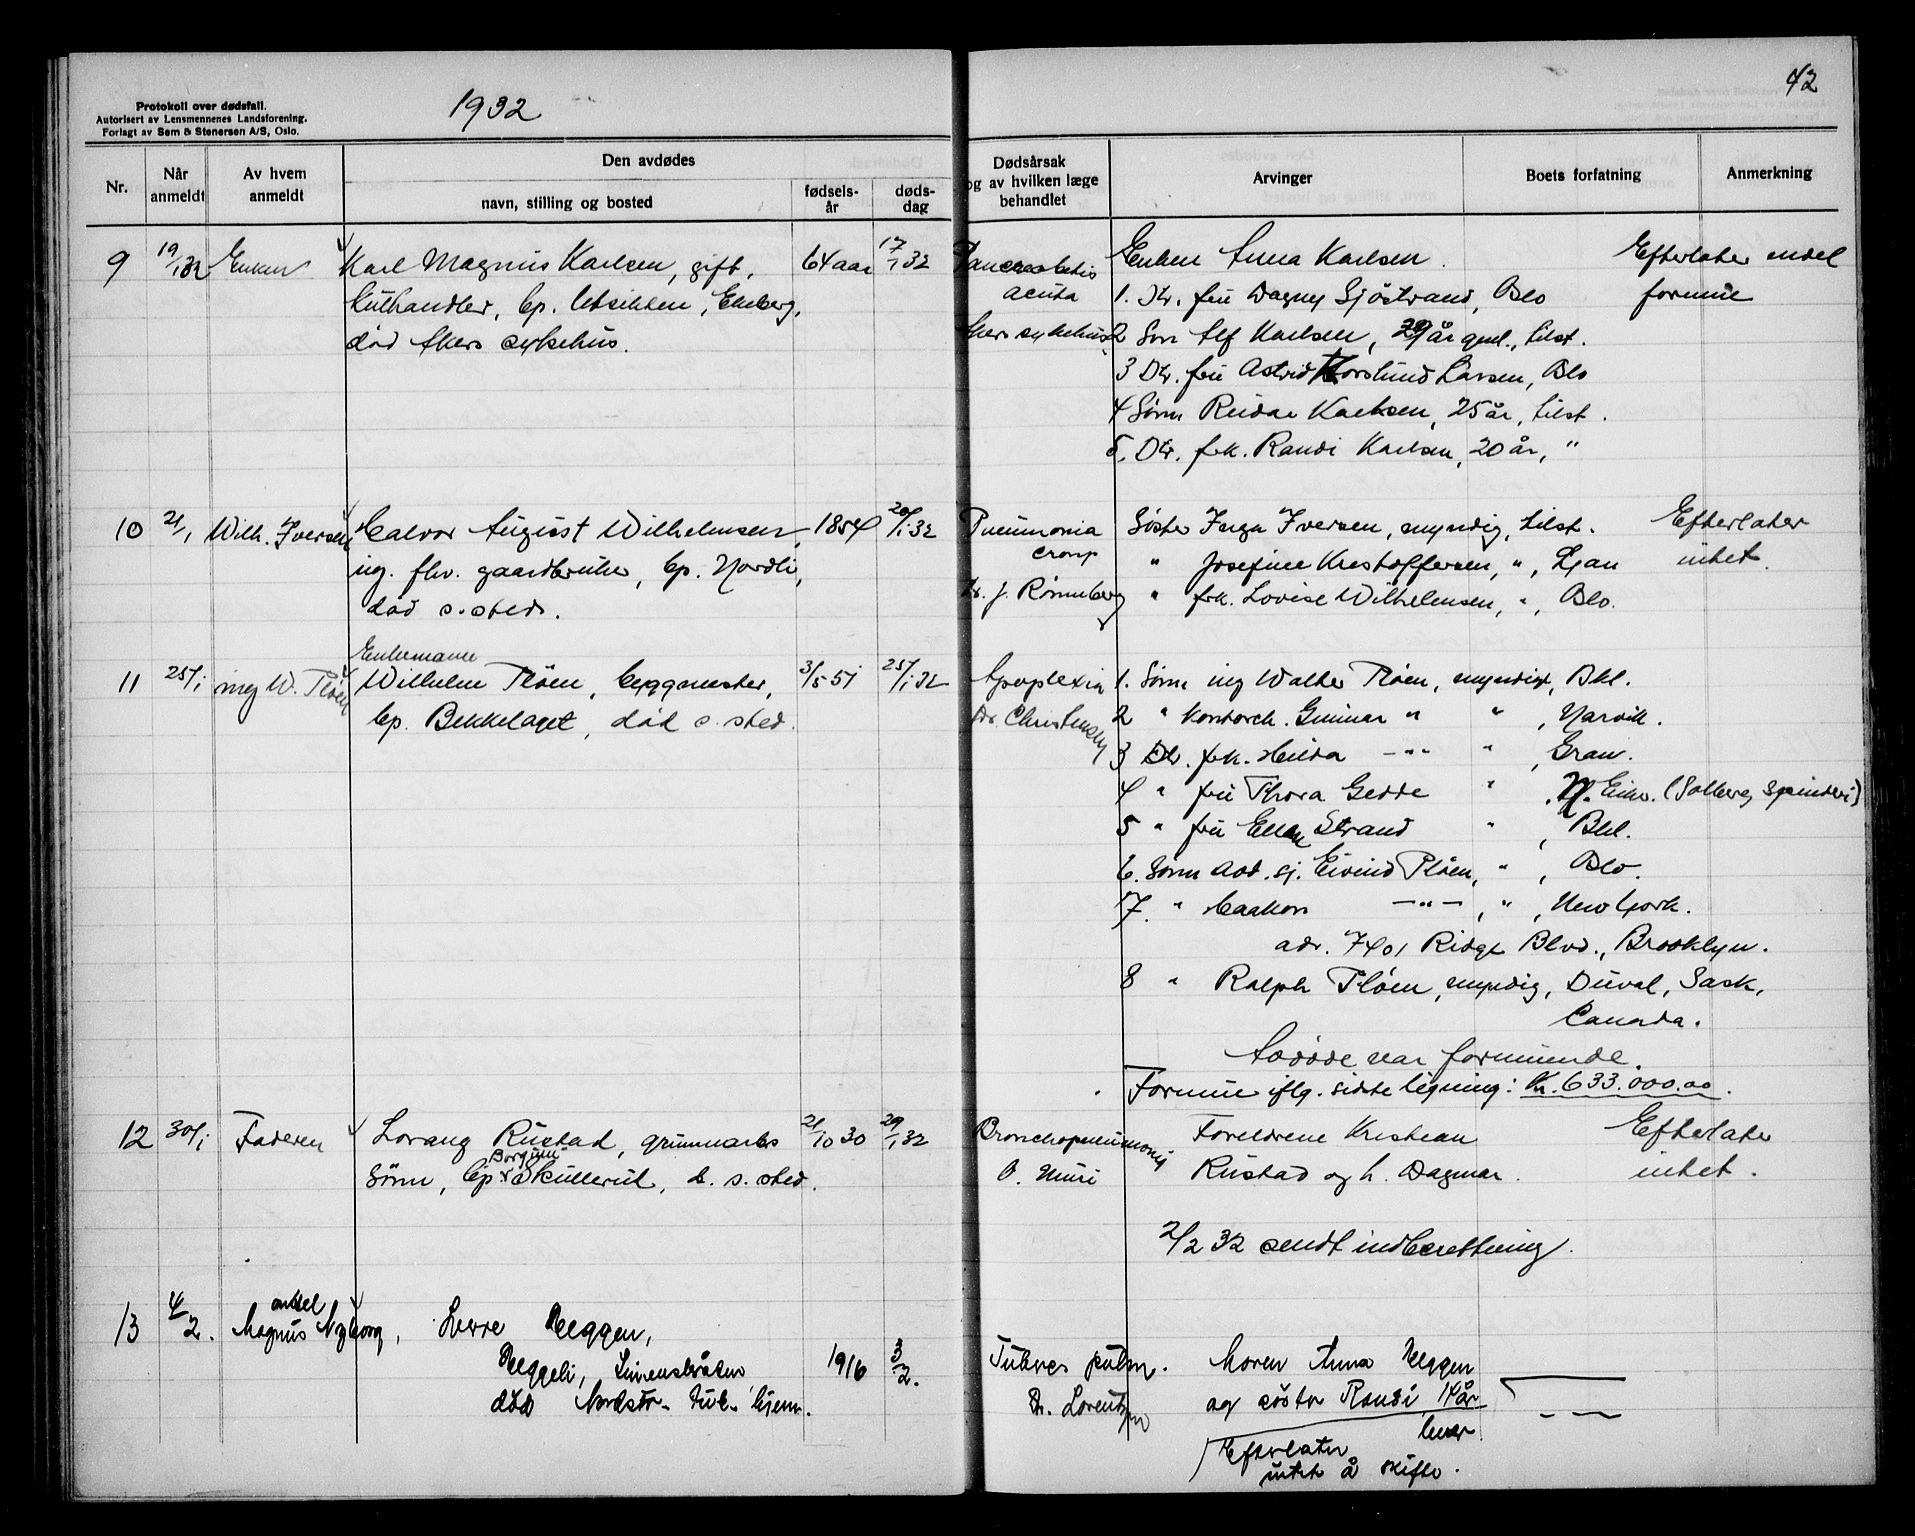 42
Protokoll over dødsfall.
Autorisert av Lensmennenes Landsforening.
Forlagt av Sem & Stenersen A/S, Oslo.
1932
Nr.
Når anmeldt
Av hvem anmeldt
Den avdødes
navn, stilling og bosted
fødsels-år
døds-dag
Dødsårsak og av hvilken læge behandlet
Arvinger
Boets forfatning
Anmerkning
9 19/1 32 Enken Karl Magnus Karlsen, gift, 64 aar 17/1 32
kulhandler, bp. Utsikten, Ekeberg,
død Akers sykehus.
acuta
Akers sykehus
Enken Anna Karlsen.
1. Dtr. fru Dagny Sjöstrand, Oslo
2 Søn Alf Karlsen, 29 år gml., tilst.
3 Dtr. fru Astrid Larsen, Oslo
4 Sønn Reidar Karlsen, 25 år, tilst.
5. Dtr. frk. Randi Karlsen, 20 år, "
Efterlater endel
formue
10 21/1 Wilh. Iversen Halvor August Wilhelmsen, 1854 20/1 32
ug. fhv. gaardbruker, bp. Nordli,
død s. sted.
Pneumonia
croup
Dr. J. Rønneberg
Søster Inga Iversen, myndig, tilst.
" Josefine Kristoffersen, ", Ljan
" frk. Lovise Wilhelmsen, ", Oslo.
Efterlater
intet.
11 25/1 ing W. Pløen
Enkemann
Wilhelm Pløen, byggmester, 3/5 51 25/1 32
bp. Bekkelaget, død s. sted.
Apoplexia
Dr. Christensen
1. Sønn ing Walter Pløen, myndig, Bkl.
2 " kontorch. Gunnar " " , Narvik.
3 Dtr. frk. Hilda -"- " , Gran.
4 " fru Thora Gedde " , N. Eiker. (Solberg Spinderi)
5 " fru Ellen Strand " , Bkl.
6. Sønn adv. sj. Eivind Pløen, " , Oslo.
7. " Haakon -"-, " , New York.
adr. 7401 Ridge Blvd., Brooklyn.
8 " Ralph Pløen, myndig, Duval, Sask,
Canada.
Avdøde var formuende.
Formue iflg. sidste ligning: Kr. 633.000.00.
12 30/1 Faderen Lorang Rustad, grunnarb. 21/10 30 29/1 32
sønn, bp Skullerud, d. s. sted.
Bronchopneumoni
Foreldrene Kristian
Rustad og h. Dagmar.
Efterlater
intet.
2/2 32 sendt indberettning.
13 4/2. onkel
Magnus Nyborg, Sverre Heggen,
Heggeli, Simensbråten 1916 3/2.
død Nordstr. tub. hjem.
Tubercs pulm.
Dr. Lorentzen
Moren Anna Heggen
og søster Randi 14 år
lever
Efterlater
intet å skifte.